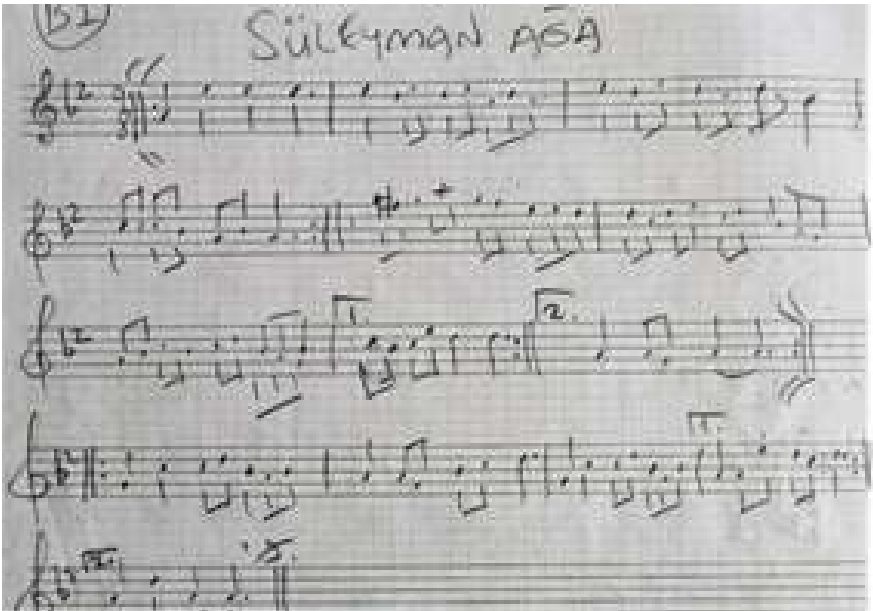 SÜLEYMAN AĞA
1.
2.
1.
2.